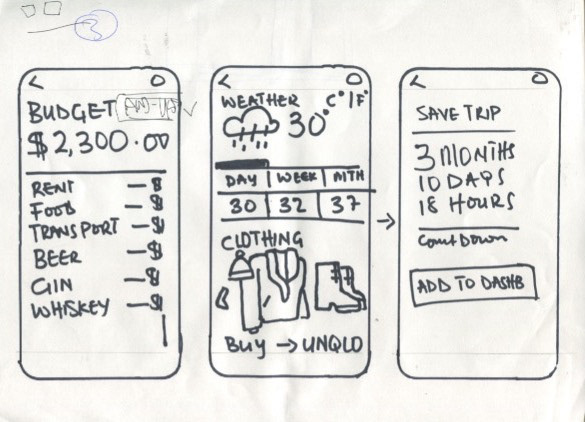 3
BUDGET
$2,300.00
RENT —$
FOOD —$
TRANSPORT —$
BEER —$
GIN —$
WHISKEY —$
WEATHER C°|F°
30°
DAY | WEEK | MTH
30 | 32 | 37
CLOTHING
Buy → UNQLO
SAVE TRIP
3 MONTHS
10 DAYS
18 HOURS
Countdown
ADD TO DASHB